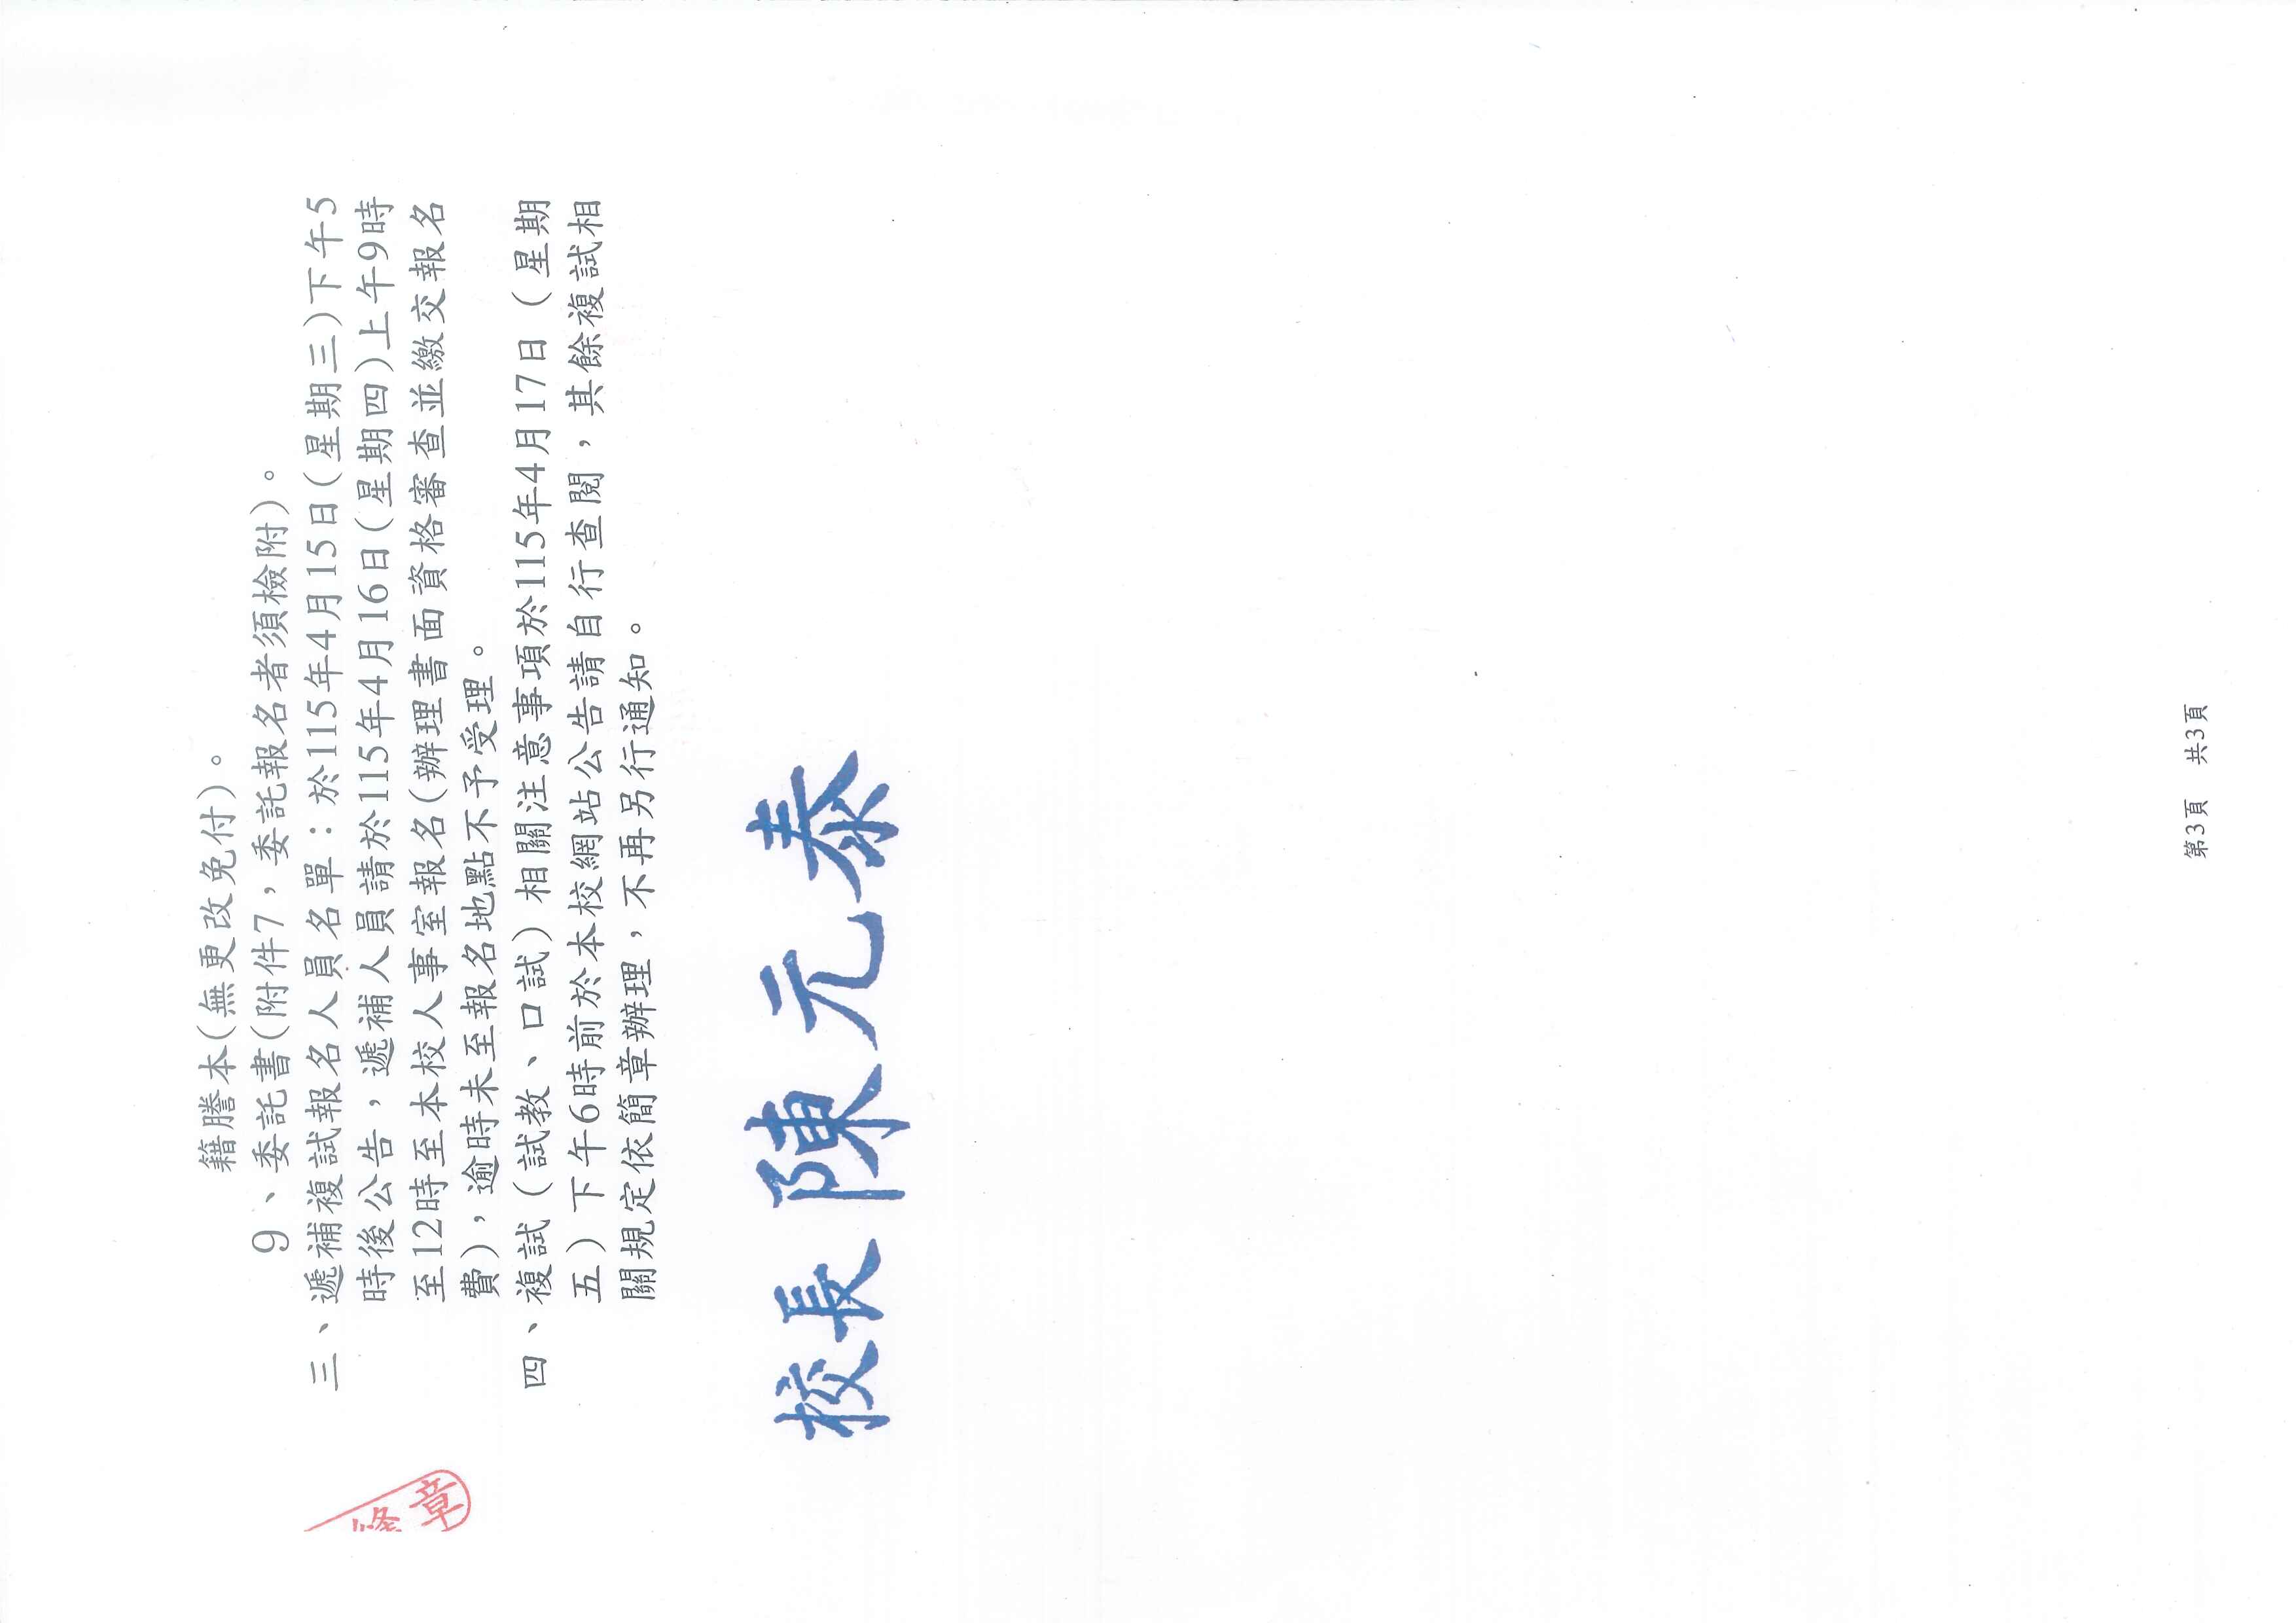 籍謄本(無更改免付)。
9、委託書(附件7,委託報名者須檢附)。
三、遞補複試報名人員名單:於115年4月15日(星期三)下午5
時後公告,遞補人員請於115年4月16日(星期四)上午9時
至12時至本校人事室報名(辦理書面資格審查並繳交報名
費),逾時未至報名地點不予受理。
四、複試(試教、口試)相關注意事項於115年4月17日(星期
五)下午6時前於本校網站公告請自行查閱,其餘複試相
關規定依簡章辦理,不再另行通知。
校長 陳元泰
章
第3頁 共3頁